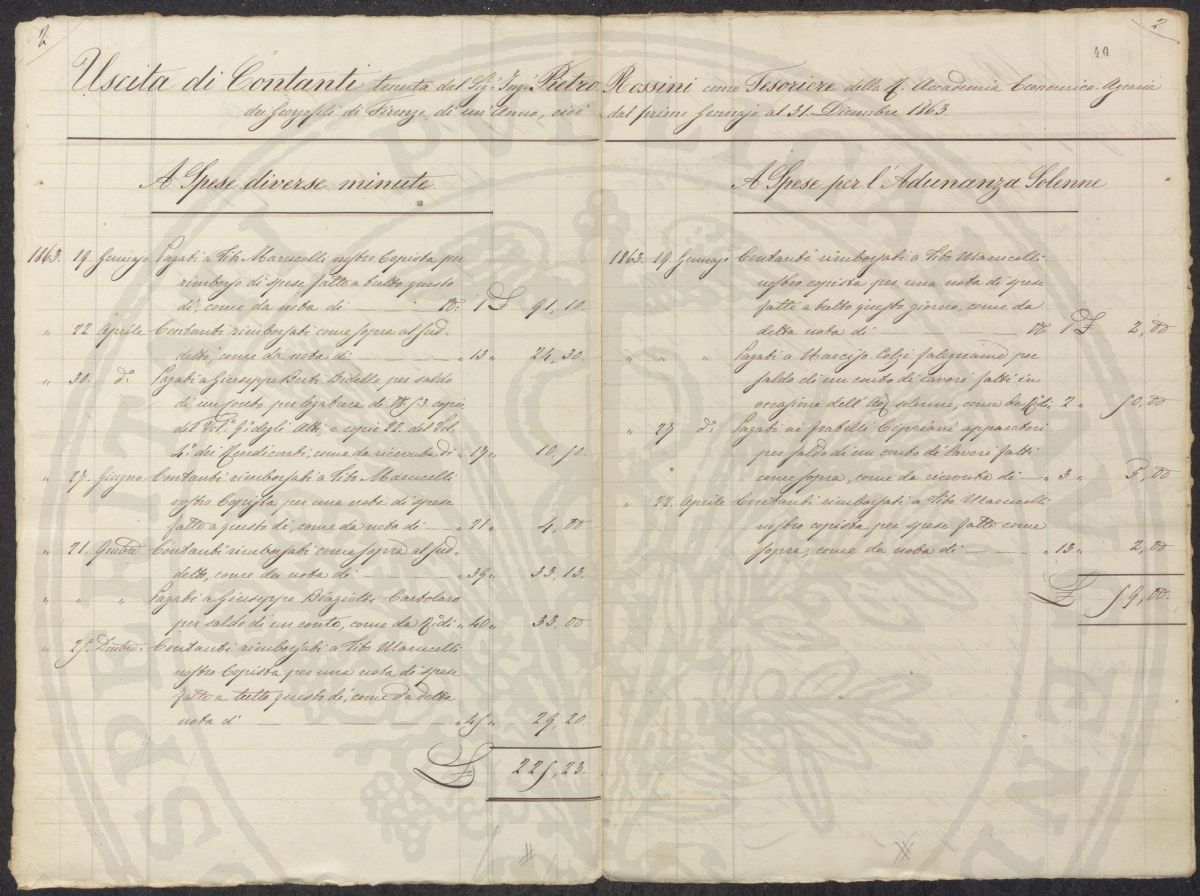 2
Uscita di Contanti tenuta dal Sig. Ing. Pietro
dei Georgofili di Firenze, di un'Anno, cioè
A Spese diverse minute
1863. 19. Gennajo Pagati a Tito Marucelli nostro Copista per
rimborso di spese fatte a tutto questo
dì, come da nota di N.° 1 £ 91,10.
" 22 Aprile Contanti rimborsati come sopra al Sud-
detto, come da nota di " 13 " 24,30.
" 30. d.° Pagati a Giuseppe Berti Bidello per saldo
di un conto per legatura di N. 53. copie
del Vol.° 9.° degli Atti, e copie 22. del Vol.
di Rendiconti, come da ricevuta di " 17 " 10,50.
" 27. Giugno Contanti rimborsati a Tito Marucelli
nostro Copista per una nota di spese
fatte a questo dì, come da nota di " 21 " 4,00
" 21. Contanti rimborsati come sopra al Sud-
detto, come da nota di " 39 " 33,13.
" " " Pagati a Giuseppe Biagiotti Cartolaro
per saldo di un conto, come da R.ª di " 40 " 33,00
" 25. Dmbre. Contanti rimborsati a Tito Marucelli
nostro Copista per una nota di spese
fatte a tutto questo dì, come da detta
nota di " 45 " 29,20.
£ 225,23.
2
40
Rossini come Tesoriere della R. Accademia Economico-Agraria
dal primo Gennajo al 31. Dicembre 1863.
A Spese per l'Adunanza Solenne
1863. 19. Gennajo Contanti rimborsati a Tito Marucelli
nostro copista per una nota di spese
fatte a tutto questo giorno, come da
detta nota di N. 1 £ 2,00
" " " Pagati a Narciso Colzi falegname per
saldo di un conto di lavori fatti in
occasione dell'Az. solenne, come da R.ª di 2 " 50,00
" 27 d.° Pagati ai fratelli Cipriani apparatori
per saldo di un conto di lavori fatti
come sopra, come da ricevuta di " 3 " 5,00
" 22. Aprile Contanti rimborsati a Tito Marucelli
nostro copista per spese fatte come
sopra, come da nota di " 13 " 2,00
£ 59,00.